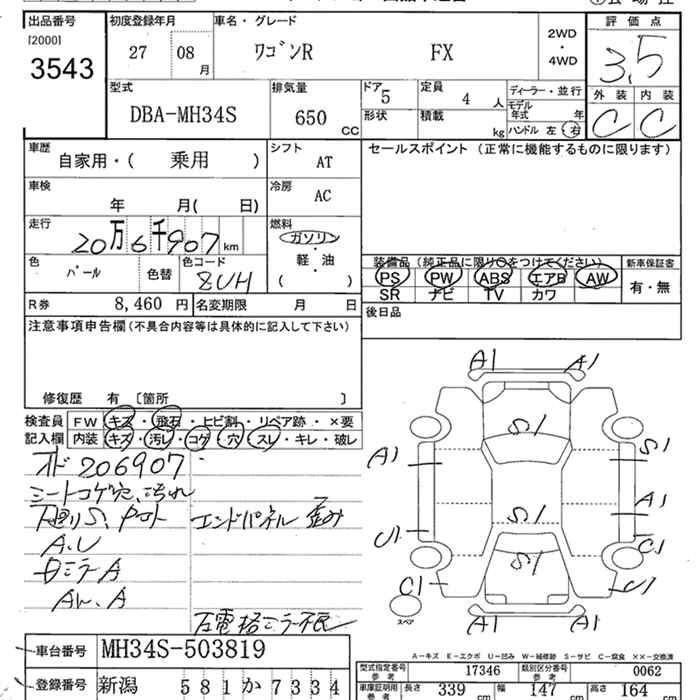 出品番号 初度登録年月 車名・グレード 評価点
[2000] 3543 27 08月 ワゴンR FX 2WD・4WD 3.5
型式 排気量 ドア 5 定員 4人 ディーラー・並行 外装 内装
DBA-MH34S 650 CC 形状 積載 kg モデル年式 年 C C
ハンドル 左・右
車歴 シフト セールスポイント (正常に機能するものに限ります)
自家用・( 乗用 ) AT
車検 冷房
年 月( 日) AC
走行 燃料
20万6千907 km ガソリン・軽・油 ( )
色 色替 色コード 装備品 (純正品に限り○をつけてください) 新車保証書
パール ZVH PS PW ABS エアB AW 有・無
SR ナビ TV カワ
R券 8,460円 名変期限 月 日 後日品
注意事項申告欄 (不具合内容等は具体的に記入して下さい)
修復歴 有 [箇所 ]
検査員 FW キズ・飛石・ヒビ割・リペア跡・×要
記入欄 内装 キズ・汚レ・コゲ・穴・スレ・キレ・破レ
206907
シートコゲ穴、汚れ
下廻りS、 エンドパネル 歪み
A.U
ミラーA
A
A1 A1
S1
A1 S1
S1 A1
U1 S1 C1
C1 U1
スペア A1 A1
A-キズ E-エクボ U-凹み W-補修跡 S-サビ C-腐食 XX-交換済
車台番号 MH34S-503819
型式指定番号 参考 17346 類別区分番号 参考 0062
登録番号 新潟 581か7334
車庫証明用 参考 長さ 339 cm 幅 147 cm 高さ 164 cm